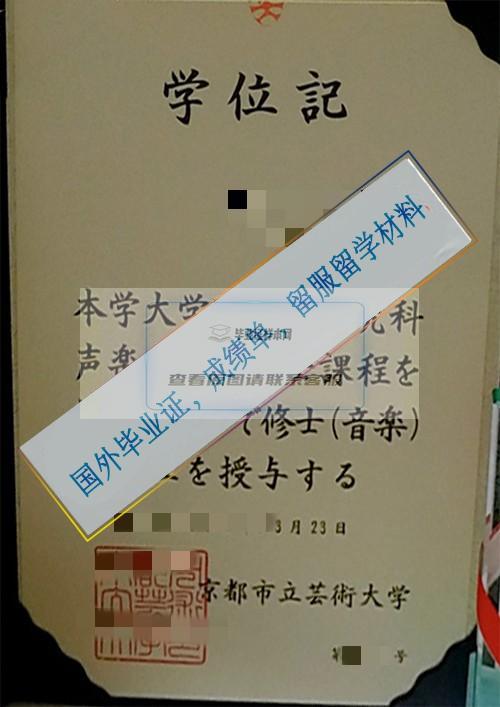 学位記
本学大学 究科
声楽 課程を
で修士(音楽)
を授与する
3月23日
京都市立芸術大学
第 号
国外毕业证，成绩单，留服留学材料
查看原图请联系客服